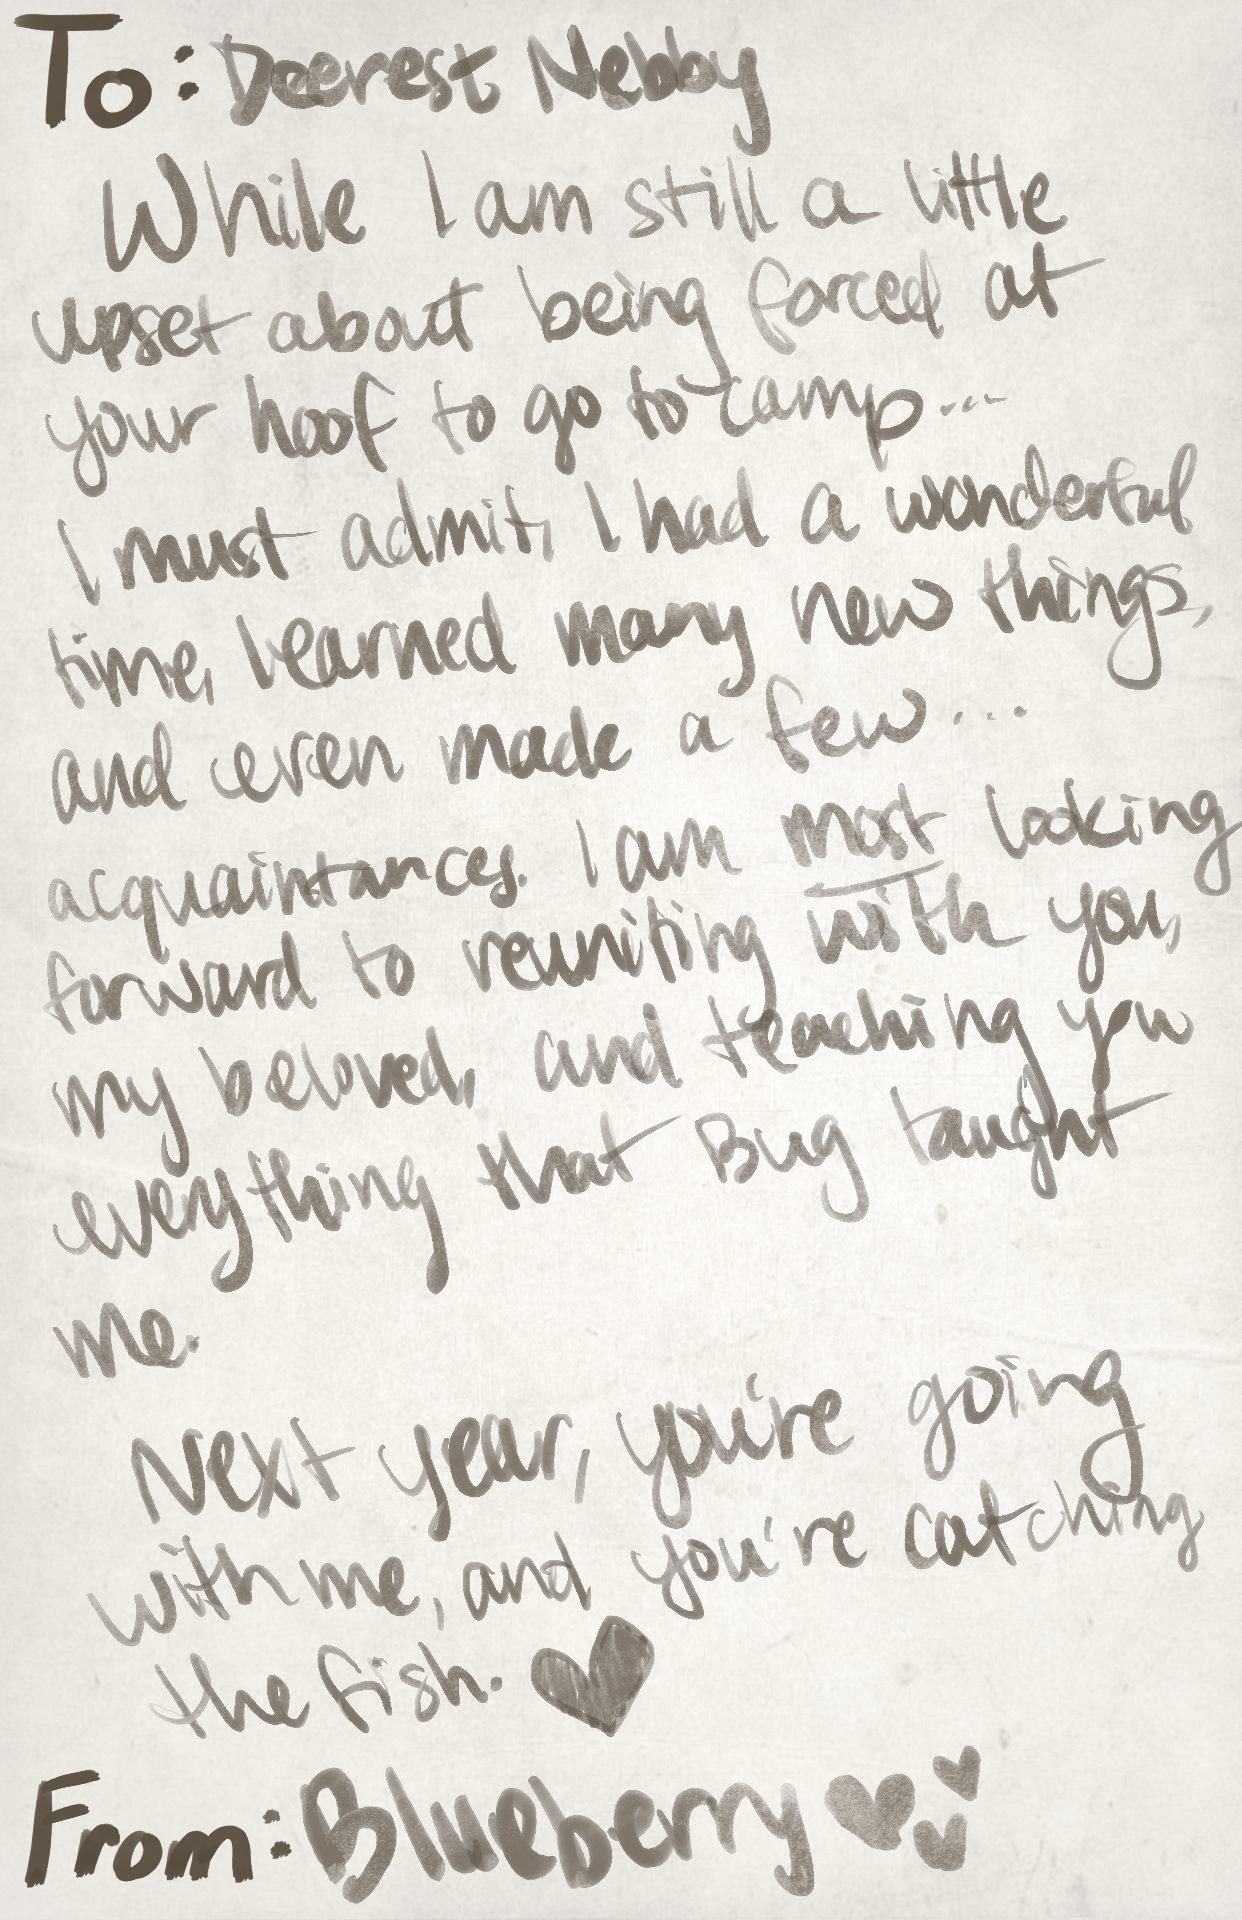 To: Deerest Nebby
While I am still a little
upset about being forced at
your hoof to go to camp...
I must admit, I had a wonderful
time, learned many new things,
and even made a few...
acquaintances. I am most looking
forward to reuniting with you,
my beloved, and teaching you
everything that Bug taught
me.
Next year, you're going
with me, and you're catching
the fish. ♥
From: Blueberry ♥♥♥